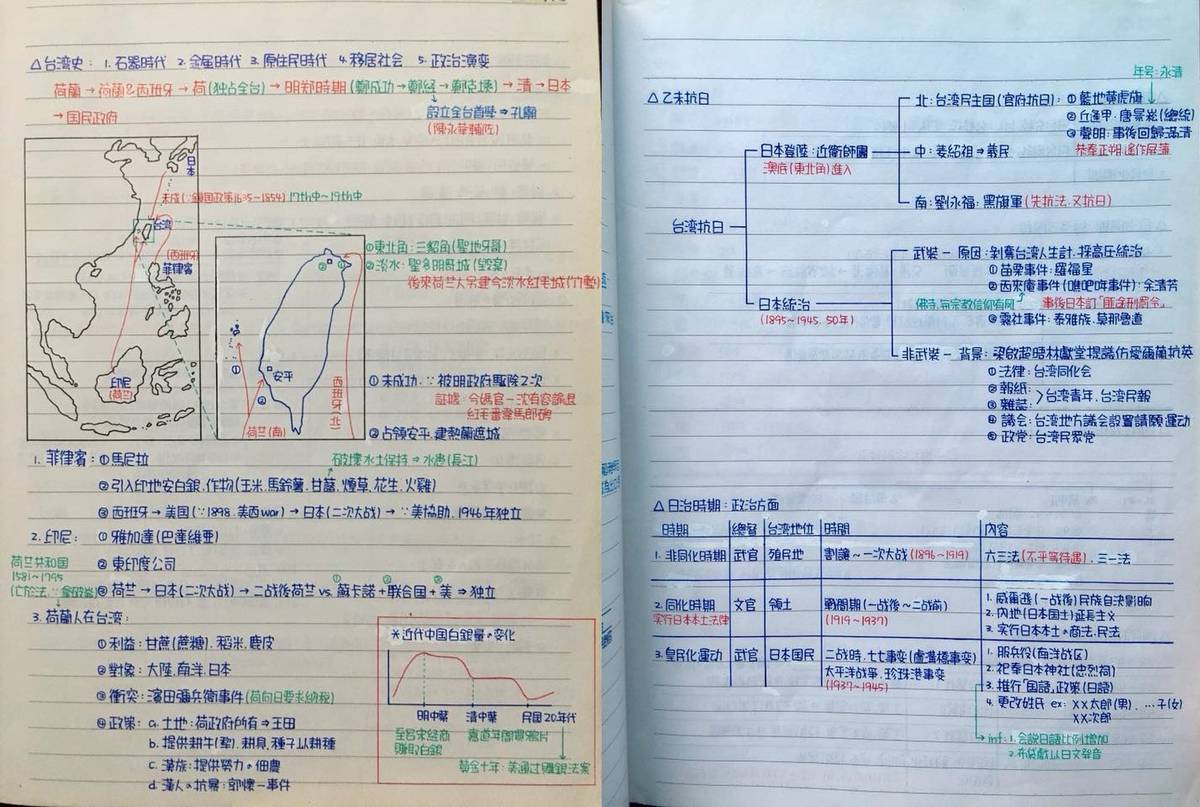 △台湾史：1. 石器時代 2. 金属時代 3. 原住民時代 4. 移居社会 5. 政治演变
荷蘭→荷蘭&西班牙→荷(独占全台)→明鄭時期(鄭成功→鄭経→鄭克塽)→清→日本
→国民政府
設立全台首學⇒孔廟
(陳永華輔佐)
日本
未成(∵鎖国政策1635~1854) 17th中~19th中
台湾
(西班牙)
菲律賓
印尼
(荷蘭)
①東北角：三貂角(聖地牙哥)
②淡水：聖多明哥城(毀棄)
後來荷蘭人另建今淡水紅毛城
② ①
①
安平
②
荷蘭(南)
西班牙(北)
①未成功，∵被明政府驅除2次
証據：今媽宮一沈有容諭退
紅毛番韋馬郎碑
②占領安平，建熱蘭遮城
破壞水土保持⇒水患(長江)
1. 菲律賓：①馬尼拉
②引入印地安白銀，作物(玉米，馬鈴薯，甘藷，煙草，花生，火雞)
③西班牙→美国(∵1898，美西war)→日本(二次大战)→∵美協助，1946年独立
2. 印尼：①雅加達(巴達維亜)
荷蘭共和国
1581~1795
(亡於法，∵拿破崙)
②東印度公司
③荷蘭→日本(二次大战)→二战後荷蘭 vs. ①蘇卡諾+②联合国+③美⇒独立
3. 荷蘭人在台湾：
①利益：甘蔗(蔗糖)，稻米，鹿皮
②對象：大陸，南洋，日本
③衝突：濱田彌兵衛事件(荷向日要求納稅)
④政策：a. 土地：荷政府所有⇒王田
b. 提供耕牛(犁)，耕具，種子以耕種
c. 漢族：提供勞力の佃農
d. 漢人の抗暴：郭懷一事件
*近代中国白銀量の変化
明中葉 清中葉 民国20年代
至呂宋経商
賺取白銀
嘉道年間買鴉片
黄金十年：美通过購銀法案
年号：永清
△乙未抗日
台湾抗日
日本登陸：近衛師團
澳底(東北角)進入
北：台湾民主国(官府抗日)：①藍地黄虎旗
②丘逢甲，唐景崧(總統)
③聲明：事後回歸滿清
恭奉正朔，遙作屏藩
中：姜紹祖⇒義民
南：劉永福：黑旗軍(先抗法，又抗日)
日本統治
(1895~1945, 50年)
武裝－原因：剝奪台湾人生計，採高圧統治
①苗栗事件：羅福星
②西來庵事件(噍吧哖事件)：余清芳
事後日本訂「匪徒刑罰令」
③霧社事件：泰雅族，莫那魯道
非武裝－背景：梁啟超時林獻堂提議仿愛爾蘭抗英
①法律：台湾同化会
②報紙：
③雜誌：
>台湾青年，台湾民報
④議会：台湾地方議会設置請願運动
⑤政党：台湾民眾党
△日治時期：政治方面
時期 總督 台湾地位 時間 內容
1. 非同化時期 武官 殖民地 割讓~一次大战(1896~1919) 六三法(不平等待遇)，三一法
2. 同化時期 文官 領土 戰間期(一战後~二战前)
实行日本本土法律
(1919~1937)
1. 威爾遜(一战後)民族自決影响
2. 內地(日本国土)延長主义
3. 实行日本本土の商法，民法
3. 皇民化運动 武官 日本国民 二战時，七七事变(盧溝橋事变)
太平洋战爭，珍珠港事变
(1937~1945)
1. 服兵役(南洋战区)
2. 祀奉日本神社(忠烈祠)
3. 推行「国語」政策(日語)
4. 更改姓氏 ex: XX太郎(男)，…子(女)
XX次郎
inf：1. 会說日語比例增加
2. 布袋戲以日文發音